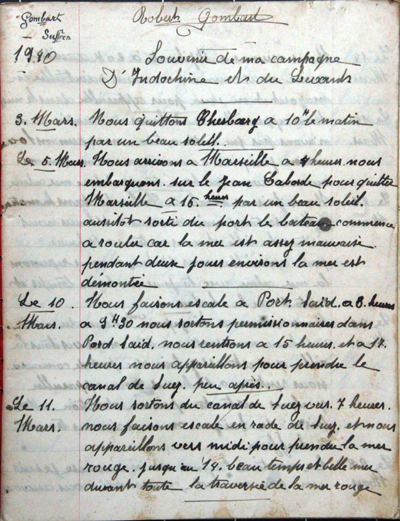 Gombart
Suffren
Robert Gombart
1940
Souvenir de ma campagne
D'Indochine et du Levant
3. Mars. Nous quittons Cherbourg a 10h le matin
par un beau soleil.
Le 5. Mars. Nous arrivons a Marseille a heures. nous
embarquons. sur le Jean Laborde pour quitter
Marseille a 15. heures par un beau soleil.
aussitot sorti du port le bateau commence
a rouler car la mer est assez mauvaise
pendant deux jours environs la mer est
demontée
Le 10. Nous faisons escale a Port. Said. a 8. heures
Mars. a 9H30 nous sortons permissionnaires dans
Pord Said, nous rentions a 15 heures. et a
heures nous appareillons pour prendre le
canal de Suez, peu après..
Le 11. Nous sortons du canal de Suez vers. 7 heures.
Mars. nous faisons escale en rade de Suez, et nous
appareillons vers midi pour prendre la mer
rouge. jusqu'au 14. beau temps et belle mer
durant toute la traversée de la mer rouge